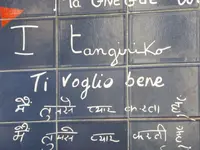 I tanguriko
Ti voglio bene
मैं तुमसे प्यार करता हूँ
मैं तुमसे प्यार करती हूँ